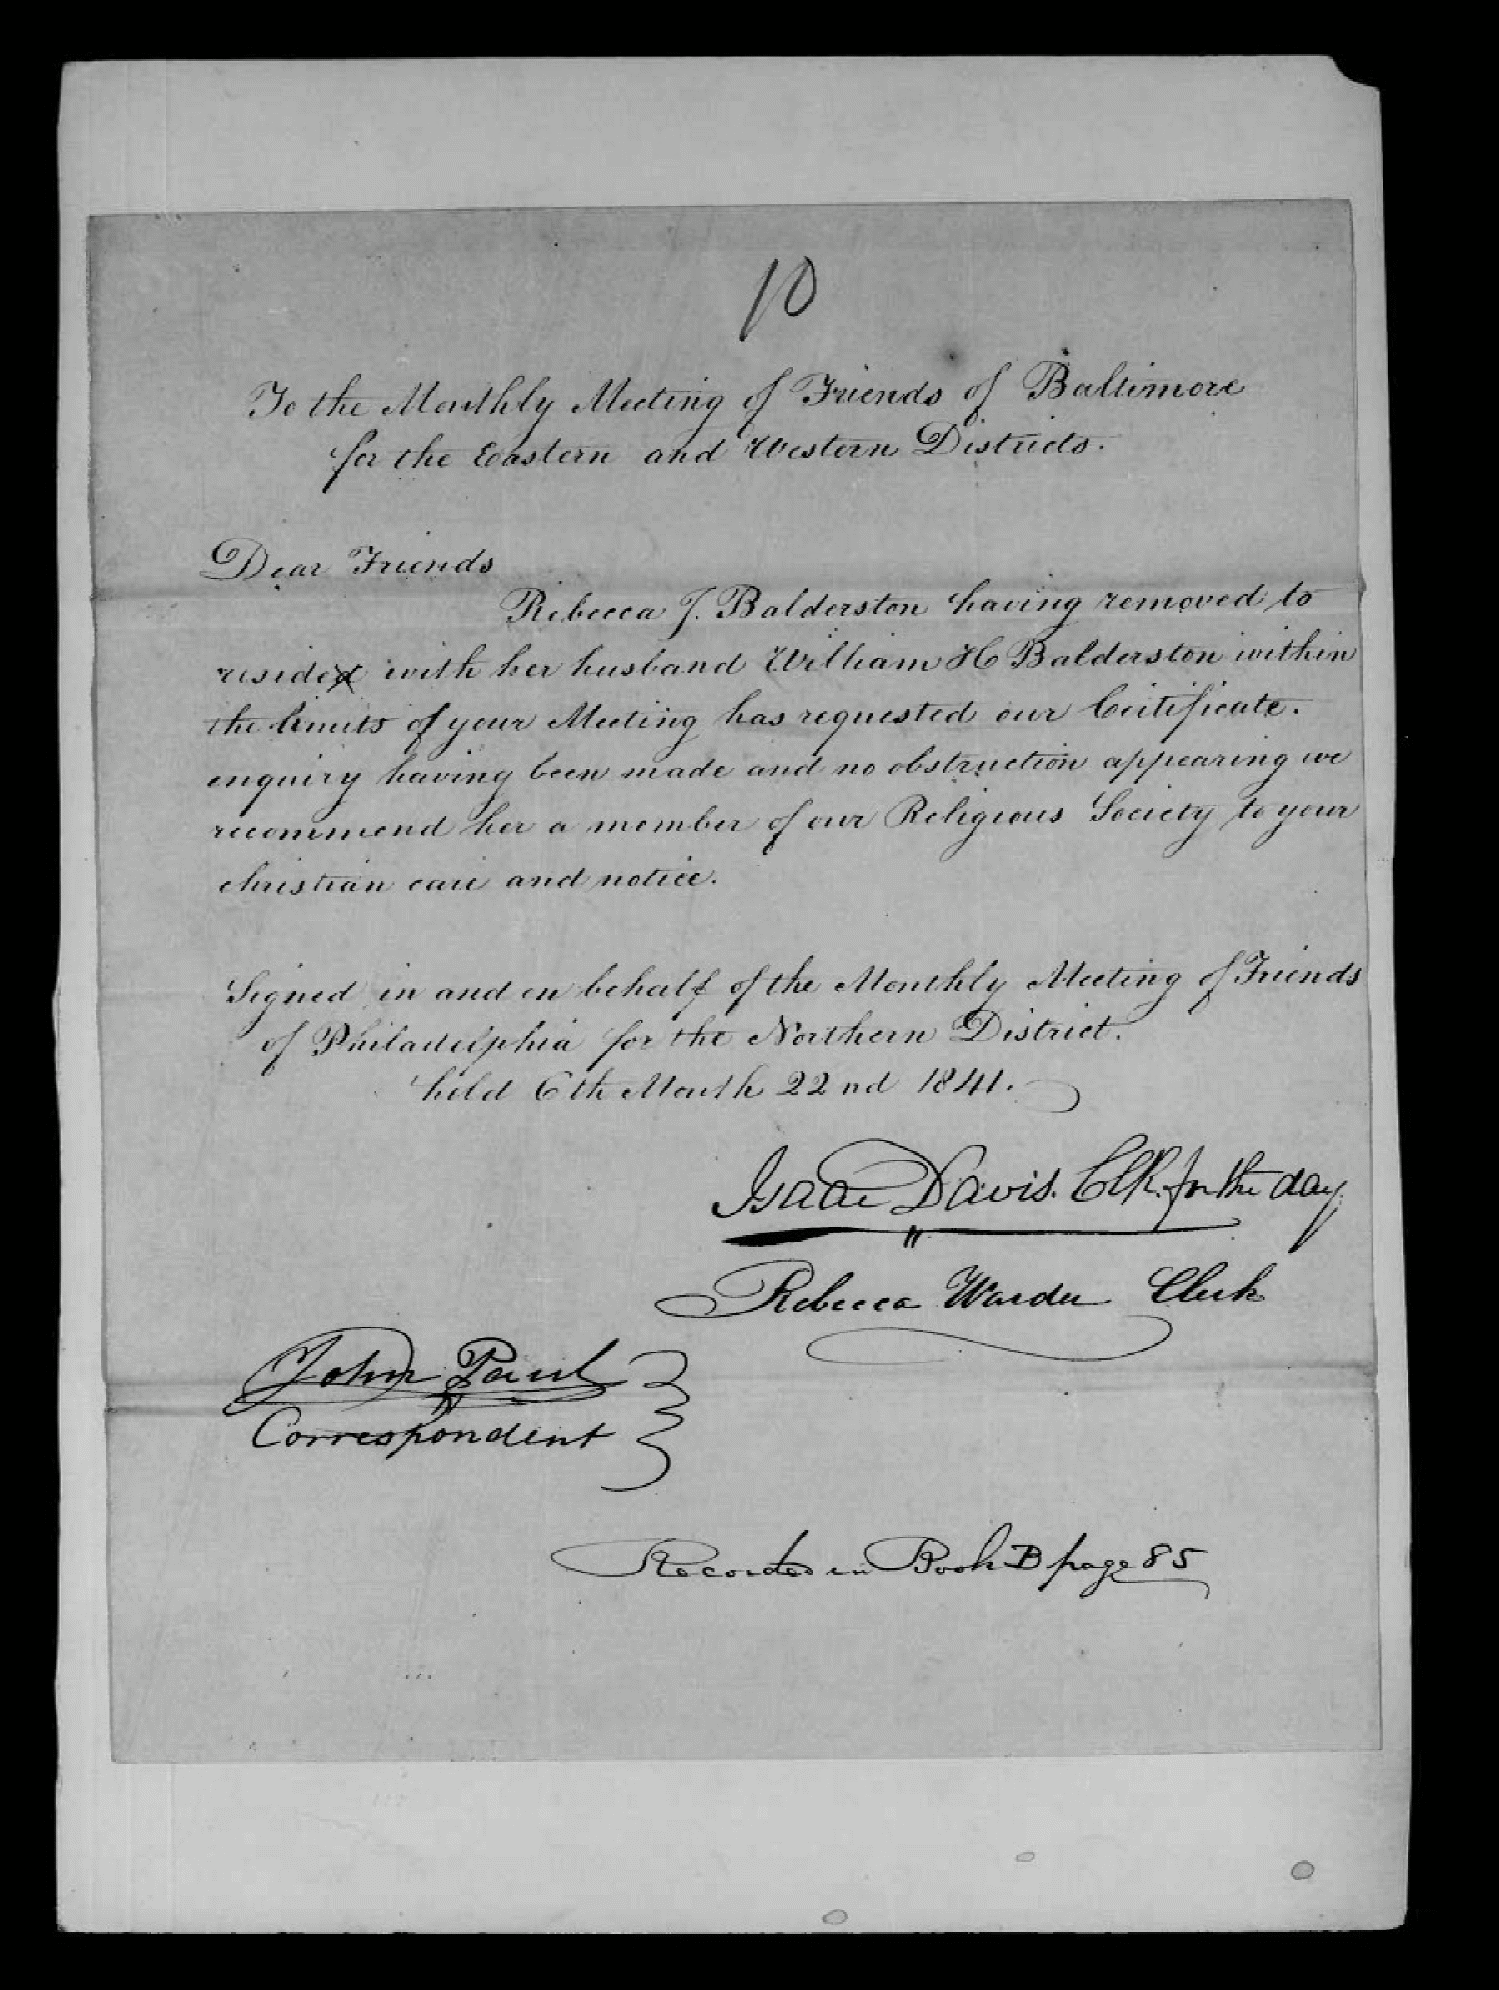 10
To the Monthly Meeting of Friends of Baltimore
for the Eastern and Western Districts.
Dear Friends
Rebecca J. Balderston having removed to
reside with her husband William H Balderston within
the limits of your Meeting has requested our Certificate.
enquiry having been made and no obstruction appearing we
recommend her a member of our Religious Society to your
christian care and notice.
Signed in and on behalf of the Monthly Meeting of Friends
of Philadelphia for the Northern District.
held 6th Month 22nd 1841.
Isaac Davis. Clk. for the day
Rebecca Warder Clerk
John Paul
Correspondent
Recorded in Book B page 85